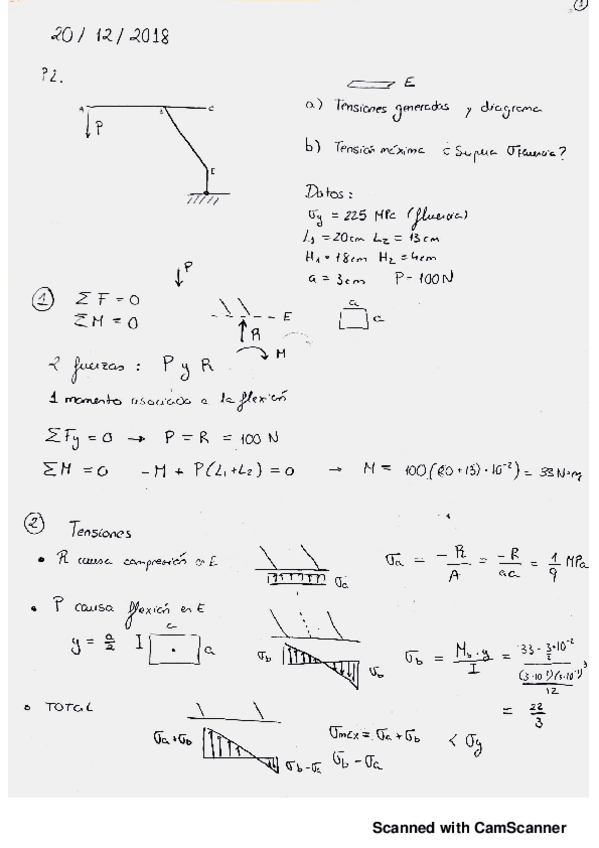 1
20/12/2018
P2.
E
A B C
P
E
a) Tensiones generadas y diagrama
b) Tensión máxima ¿Supera σfluencia?
Datos:
σy = 225 MPa (fluencia)
L1 = 20cm L2 = 13cm
H1 = 18cm H2 = 4cm
a = 3cm P = 100N
P
1 ΣF = 0
ΣM = 0
E
R
M
a
a
2 fuerzas: P y R
1 momento asociado a la flexión
ΣFy = 0 → P = R = 100 N
ΣM = 0 -M + P(L1+L2) = 0 → M = 100.(20+13)·10^-2) = 33N·m
2 Tensiones
• R causa compresión en E
σa
σa = -R/A = -R/aa = 1/9 MPa
• P causa flexión en E
y = a/2 I
a
a
σb
σb
σb = Mb·y/I = 33·
12
= 22/3
• TOTAL
σa+σb
σb-σa
σmáx = σa + σb < σy
σb - σa
Scanned with CamScanner